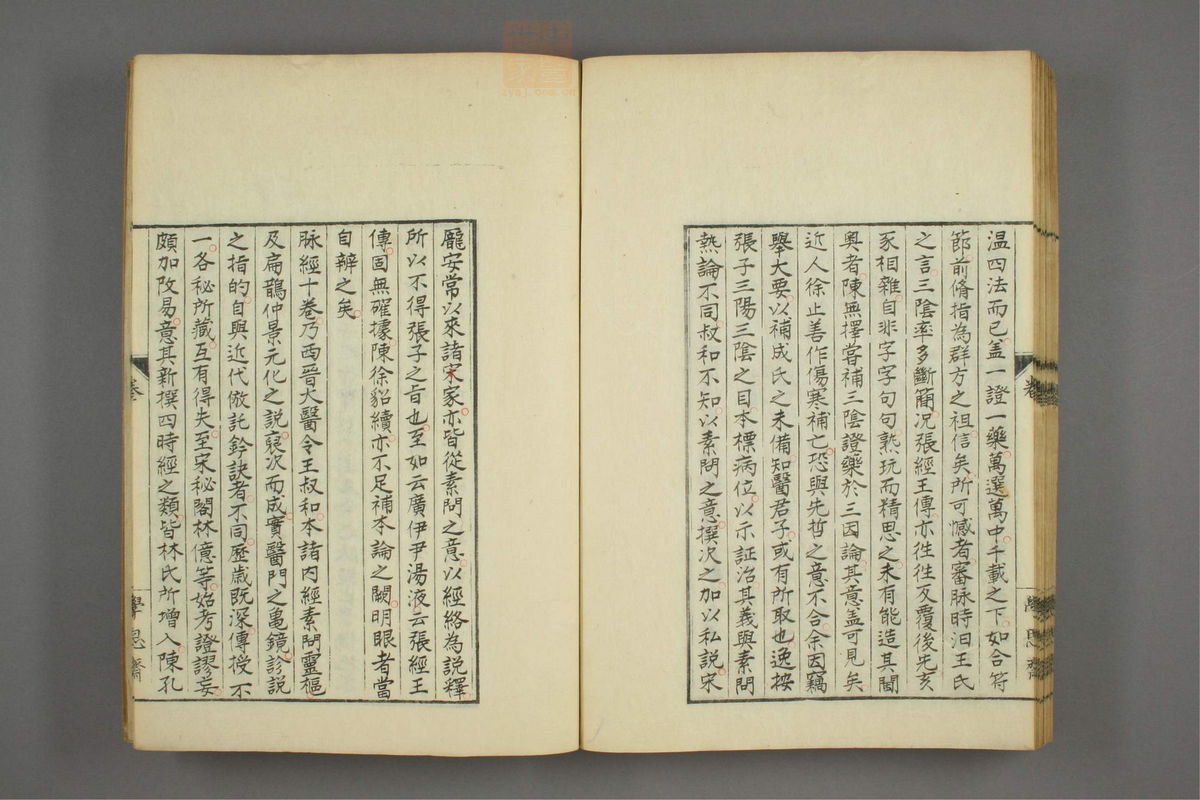 温四法而已盖一證一藥萬選萬中千載之下如合符
節前脩指為群方之祖信矣所可憾者審脉時汨王氏
之言三陰率多斷簡况張經王傳亦徃徃反覆後先亥
豕相雜自非字字句句熟玩而精思之未有能造其閫
奥者陳無擇嘗補三陰證藥於三因論其意盖可見矣
近人徐止善作傷寒補亡恐與先哲之意不合余因竊
舉大要以補成氏之未備知醫君子或有所取也逸按
張子三陽三陰之目本標病位以示証治其義與素問
熱論不同叔和不知以素問之意撰次之加以私說宋
龐安常以來諸宋家亦皆從素問之意以經絡為說釋
所以不得張子之旨也至如云廣伊尹湯液云張經王
傳固無確據陳徐貂續亦不足補本論之闕明眼者當
自辨之矣
脉經十卷乃西晉大醫令王叔和本諸内經素問靈樞
及扁鵲仲景元化之説裒次而成實醫門之龜鏡診説
之指的自與近代倣託鈐訣者不同歷歲既深傳授不
一各秘所藏互有得失至宋秘閣林億等始考證謬妄
頗加改易意其新撰四時經之類皆林氏所增入陳孔
卷
學思齋